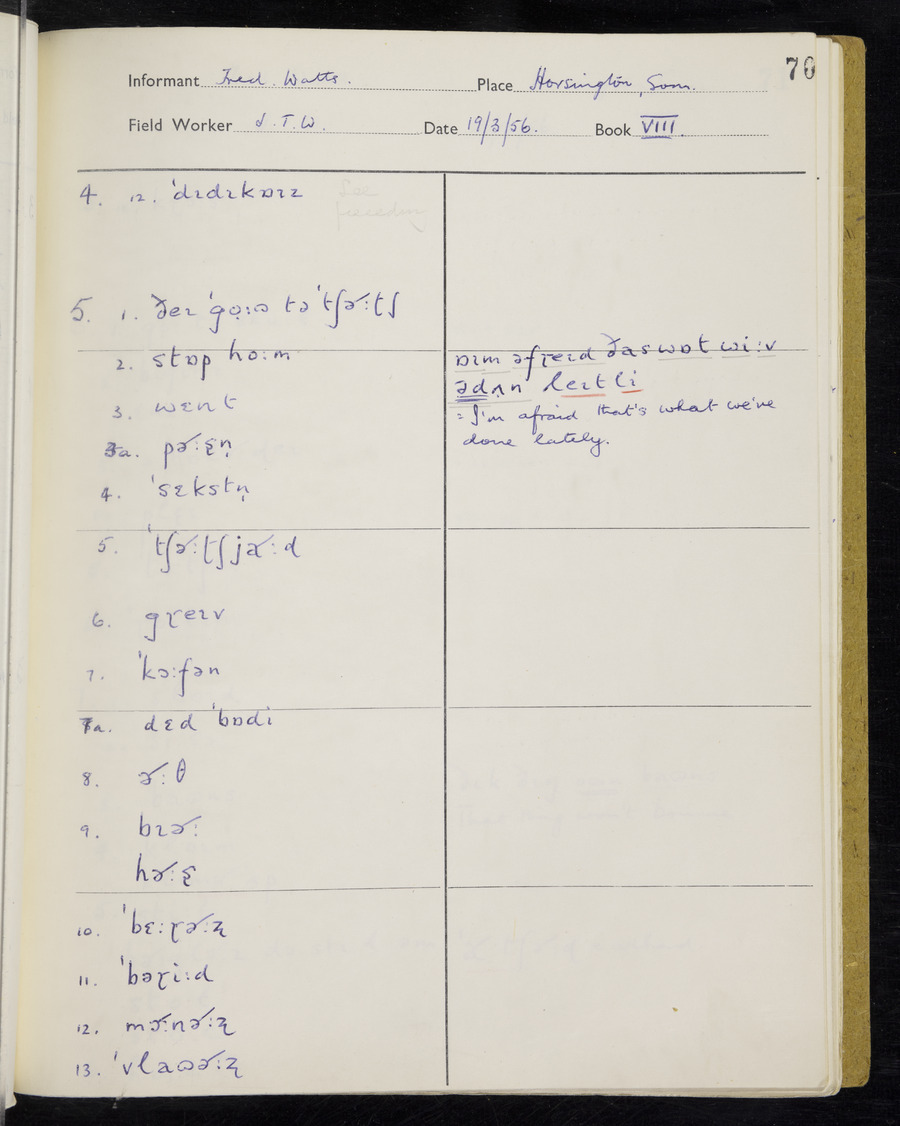 70
Informant Fred Watts. Place Horsington, Som.
Field Worker J.T.W. Date 19/3/56. Book VIII
4. 12. ˈdɪdɪkɒɪz
See
preceding
5. 1. ðeɪ ˈgo̜ːʊ tə ˈtʃɚːtʃ
2. stɒp hoːm
3. wɛnt
3a. pɚːʂn̩
4. ˈsɛkstn̩
5. ˈtʃɚːtʃjɑ˞ːd
6. gɽeɪv
7. ˈkɔːfən
7a. dɛd ˈbɒdi
8. ɚːθ
9. bɪɚː
hɚːʂ
10. ˈbɛːɽɚːʐ
11. ˈbəɽiːd
12. mɔ˞ːnɚːʐ
13. ˈvlaʊɚːʐ
ɒɪm əfɽeɪd ðaswɒt wiːv
ədʌn leɪtli
= I'm afraid that's what we've
done lately.